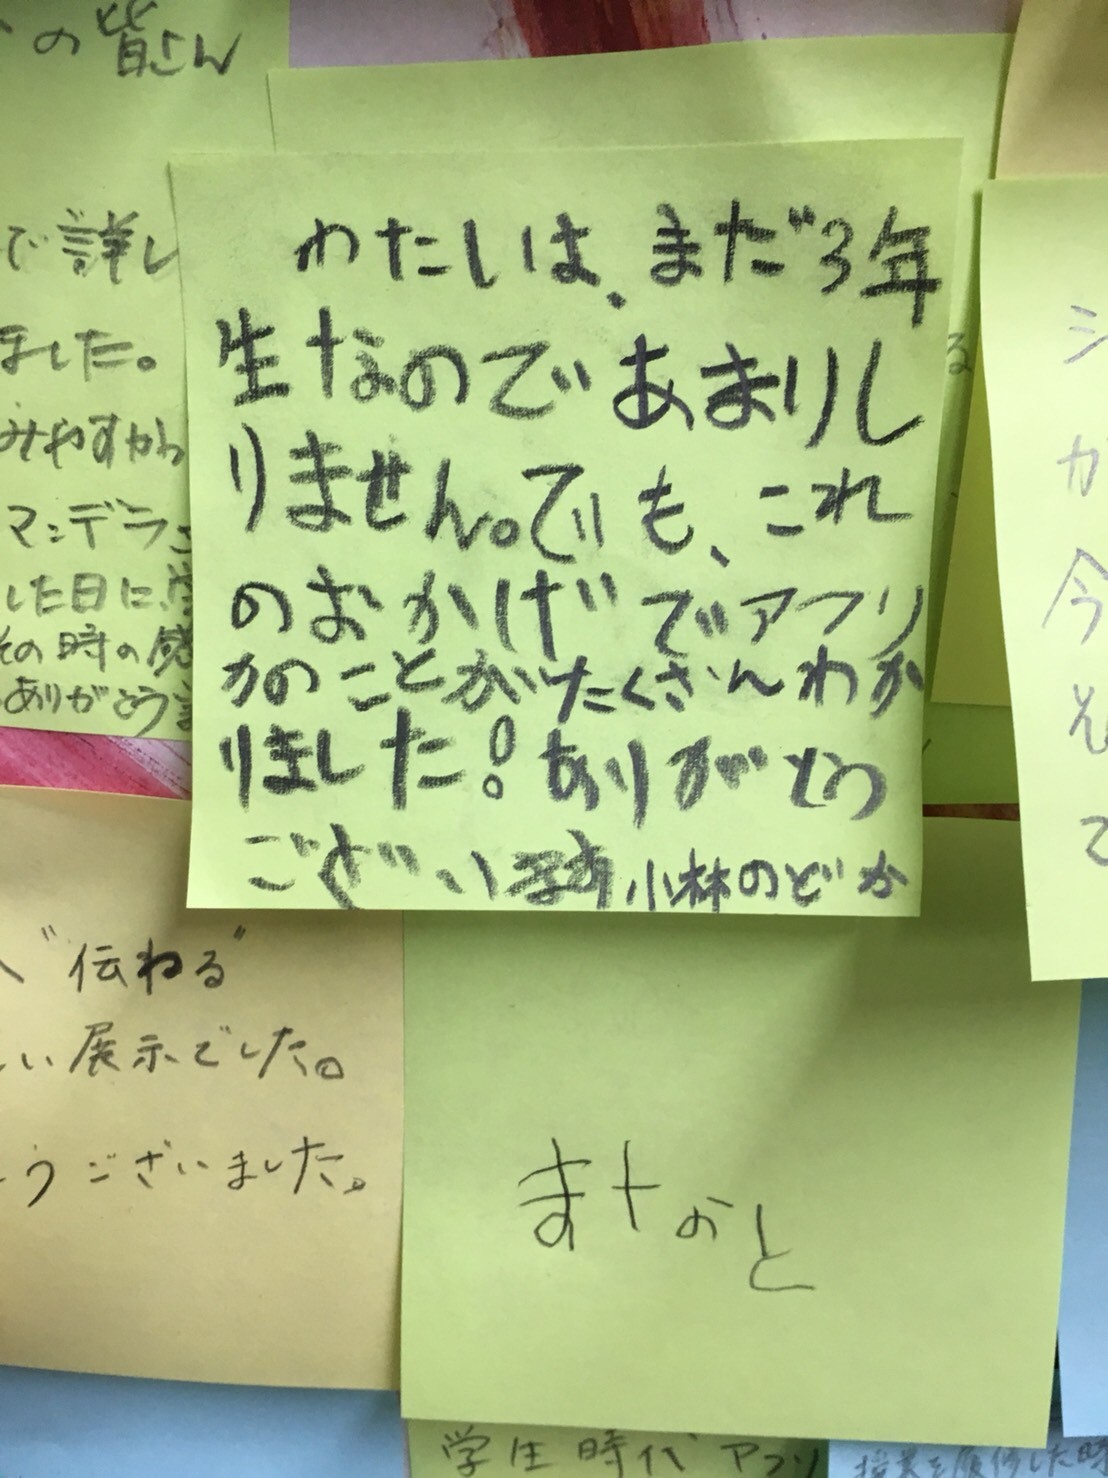 の皆さん
で詳し
ました。
みやすかっ
マンデラさ
した日に、
その時の感
ありがとう
わたしは、まだ3年
生なのであまりし
りません。でも、これ
のおかげでアフリ
カのことがたくさんわか
りました!ありがとう
ございます小林のどか
シ
か
今
そ
て
る
"伝わる"
い展示でした。
うございました。
学生時代アフリ
授業を履修した時